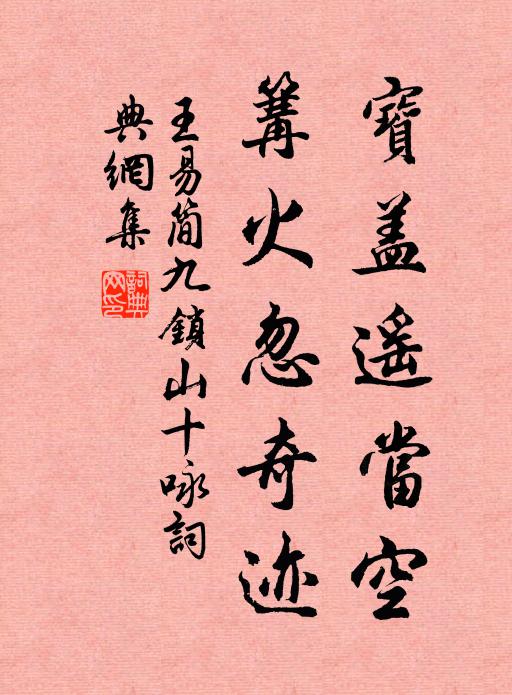 寶蓋遥當空
篝火忽奇迹
王易简九鎖山十咏詞
典網集
詞典網印